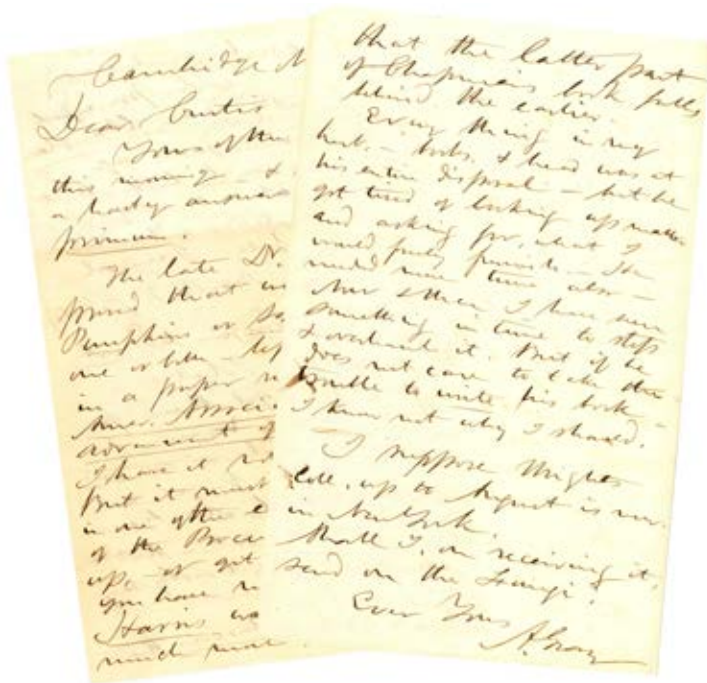 Cambridge
Dear Curtis
Yours of the
this morning – &
a hasty answer
primum.
The late Dr.
proved that
Pumpkins or
one or both
in a paper
Amer. Associ
advancement of
I have it
But it must
in one of the
of the Procee
up, – or get
you have
Harris
much more
that the latter part
of Chapman's book falls
behind the earlier.
Every thing in my
herb. – books, & head was at
his entire disposal – but he
got tired of looking up matter
and asking for, what I
would freely furnish. – He
needed more time also –
Now & then I have seen
something in time to stop
& overhaul it. But if he
does not care to take the
trouble to write his book –
I know not why I should.
I suppose Wright's
coll. up to August is now
in New York.
Shall I, on receiving it,
send on the Fungi?
Ever Yours
A. Gray